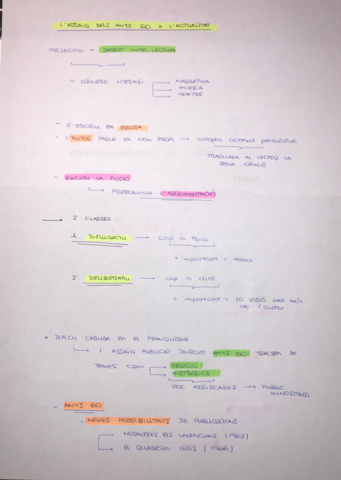 L'ASSAIG DELS ANYS 60 A L'ACTUALITAT
OBJECTIU = DEBAT INTEL·LECTUAL
4 GÈNERE LITERARI
NARRATIVA
POESIA
TEATRE
- S'ESCRIU EN PROSA
- L'AUTOR PARLA EN NOM PROPI → ACTITUD PERSUASIVA
TRASLLADAR AL LECTOR LA
SEUA OPINIÓ
- EXCLOU LA FICCIÓ
↳ PREDOMINA L'ARGUMENTACIÓ
→ 2 CLASSES:
1. DIVULGATIU → cap a fora
+ important = tema
2. DELIBERATIU → cap a dins
+ important = la visió del món
de l'autor
EN EL FRANQUISME
↳ 1 ASSAIG PUBLICAT DURANT ANYS 60 TRACTA DE
TEMES COM
RELIGIÓ
HISTÒRICS
POC ARRISCADES → PÚBLIC
MINORITARI
- ANYS 60
- NOVES POSSIBILITATS DE PUBLICACIONS
NOSALTRES ELS VALENCIANS (1962)
EL QUADERN GRIS (1966)